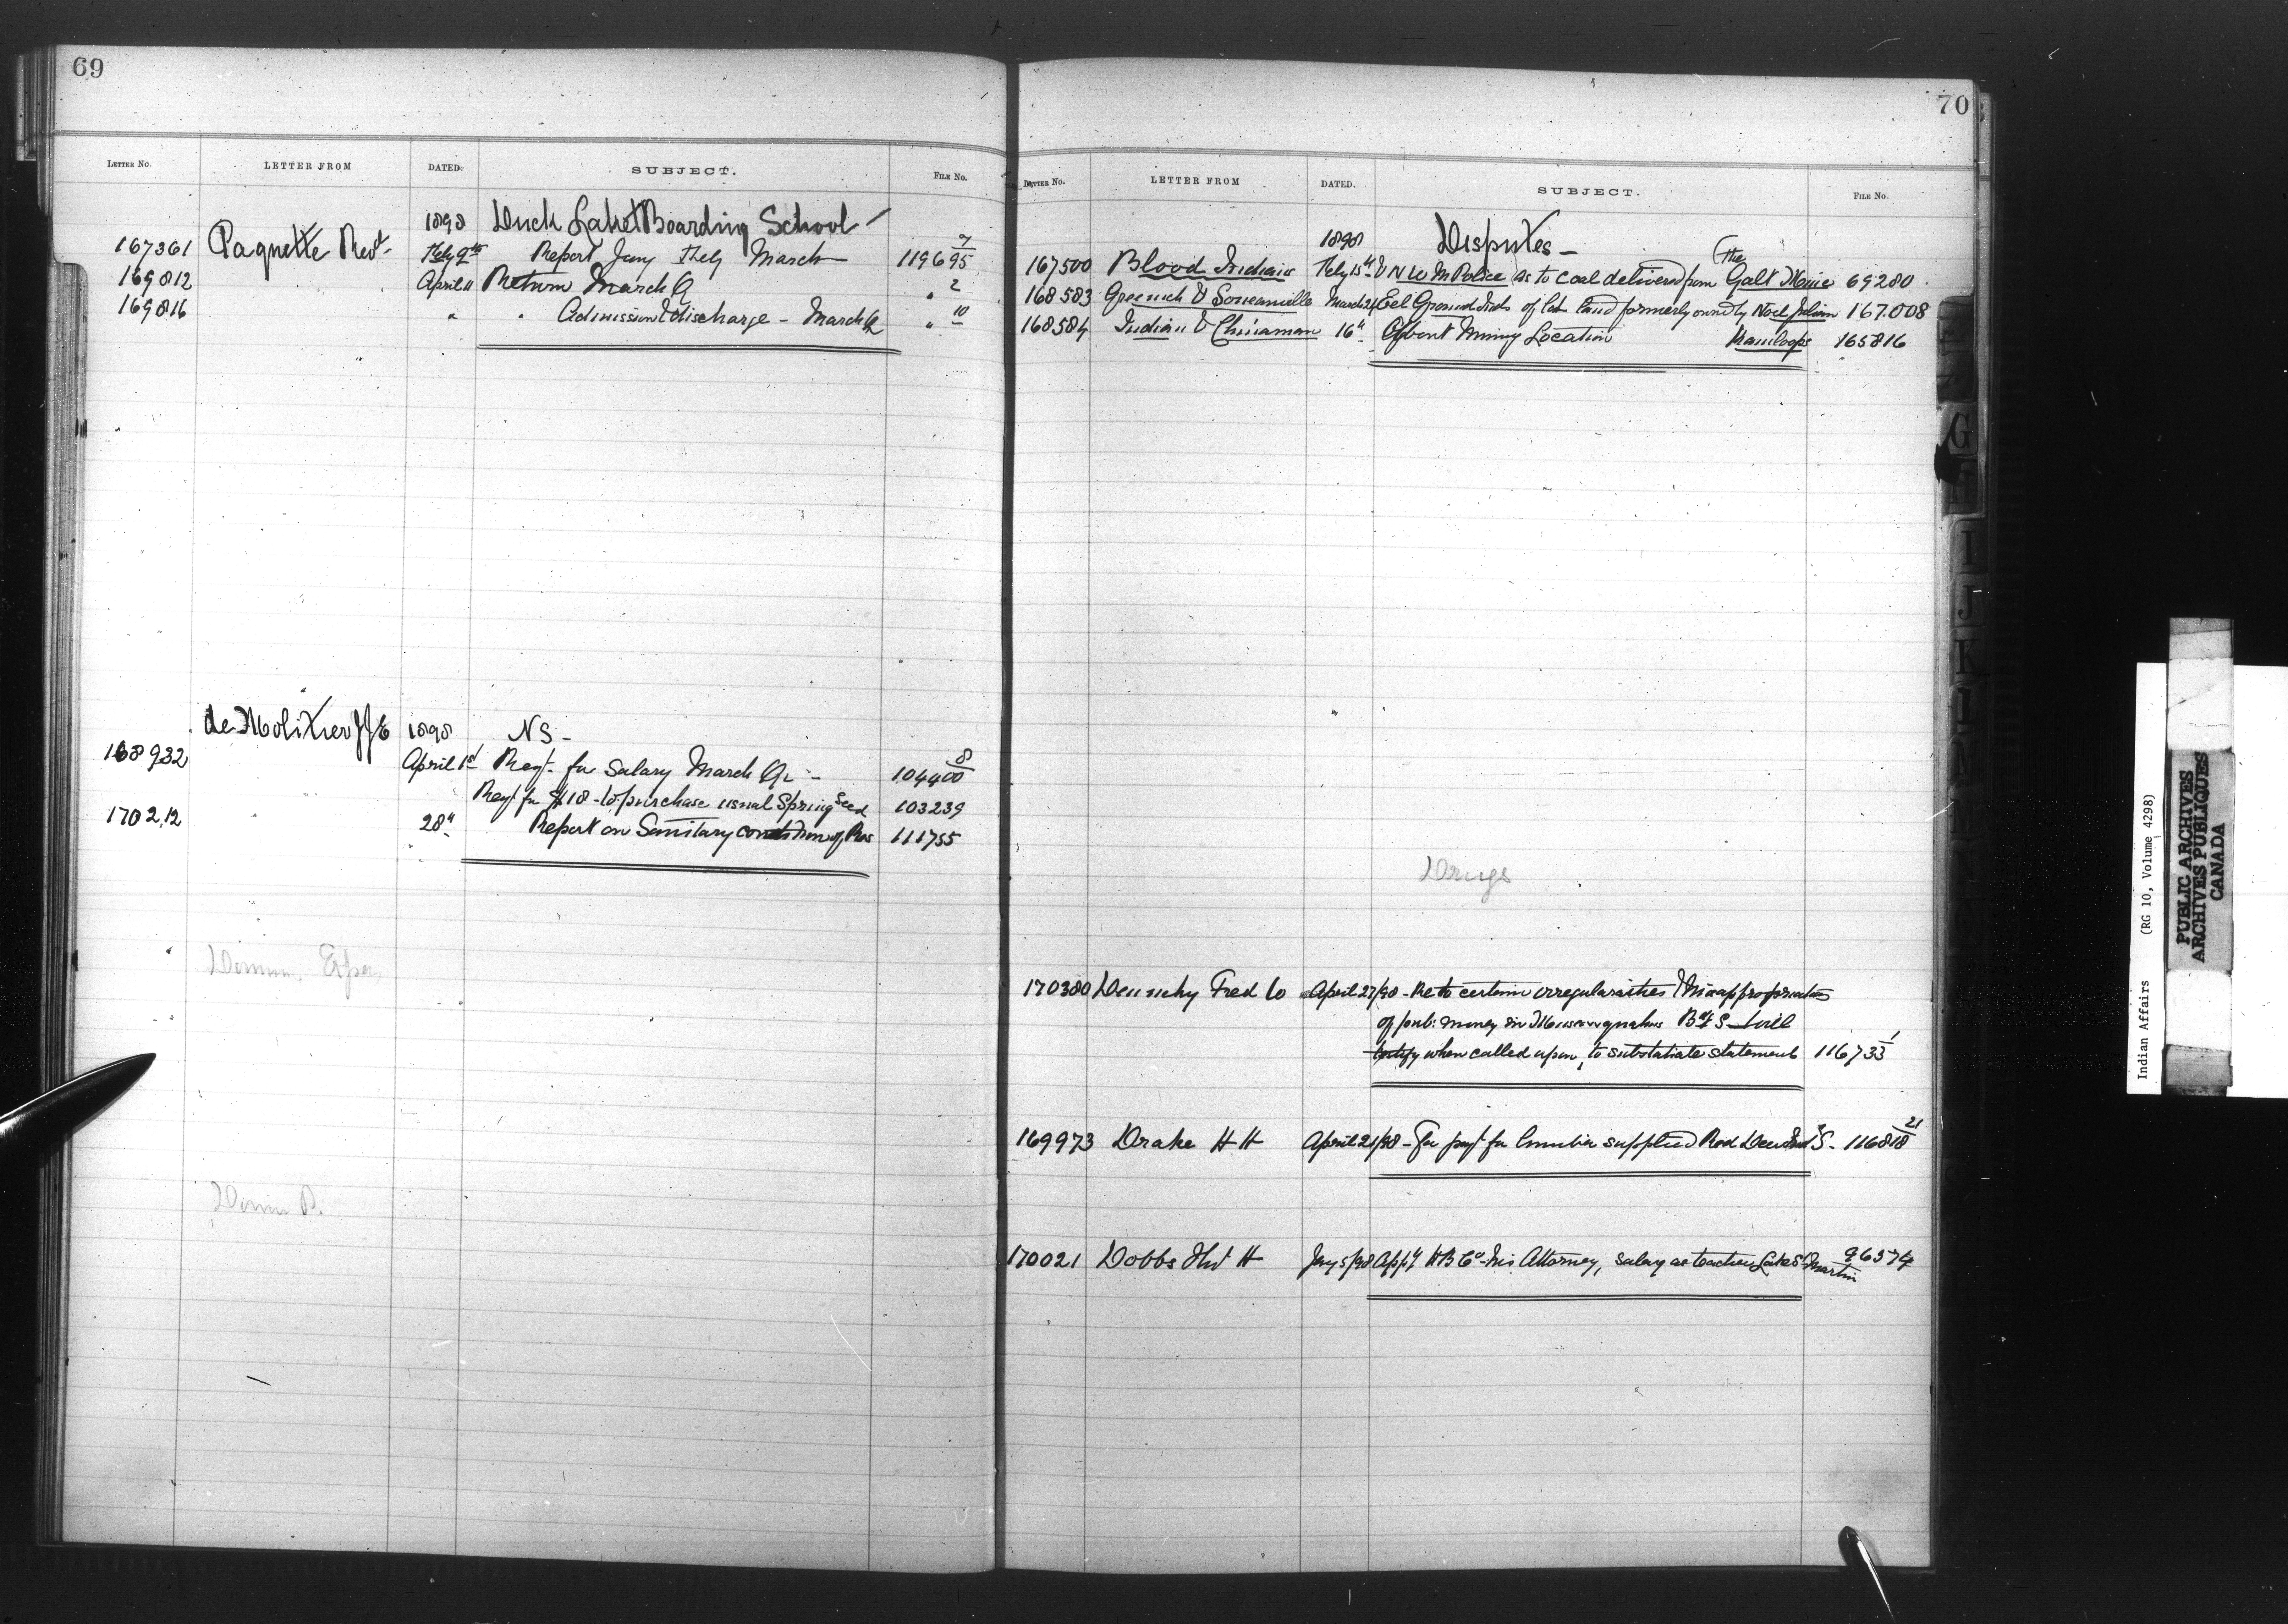 69
LETTER No. LETTER FROM DATED. SUBJECT. FILE No.
1898 Duck Lake Boarding School
167361 Paquette Revd Feby 9th Report Jany Feby March 119695 7
169812 April 11 Return March Q " 2
169816 " " Admission & discharge - March Q " 10
de Molitor 1898 NS -
168932 April 1st Reqt. for Salary March Qr - 104400 8
Reqt for $118 - to purchase usual Spring Seed 103239
170212 28th Report on Sanitary condition of Res 111755
Domin. Exper.
Domin P.
70
LETTER No. LETTER FROM DATED. SUBJECT. FILE No.
1898 Disputes -
167500 Blood Indians Feby 15th & N W M Police as to coal delivered from the Galt Mine 69280
168583 & March 21 Eel Ground Inds of land formerly owned by Noel Julian 167008
168584 Indian & Chinaman 16th About Mining Location Kamloops 165816
Drugs
170380 Fred Co April 27/98 - Re to certain irregularities & Misappropriation
of pub: money in B'd S - will
testify when called upon, to substatiate statement 116733 1
169973 Drake H H April 21/98 - For payt for lumber supplied Red Deer Ind S. - 116818 21
170021 Dobbs H Jany 5/98 App'g H B Co - his Attorney, salary as teacher Lake St Martin 96574
Indian Affairs (RG 10, Volume 4298)
PUBLIC ARCHIVES
ARCHIVES PUBLIQUES
CANADA
G
I
J
K
L
M
N